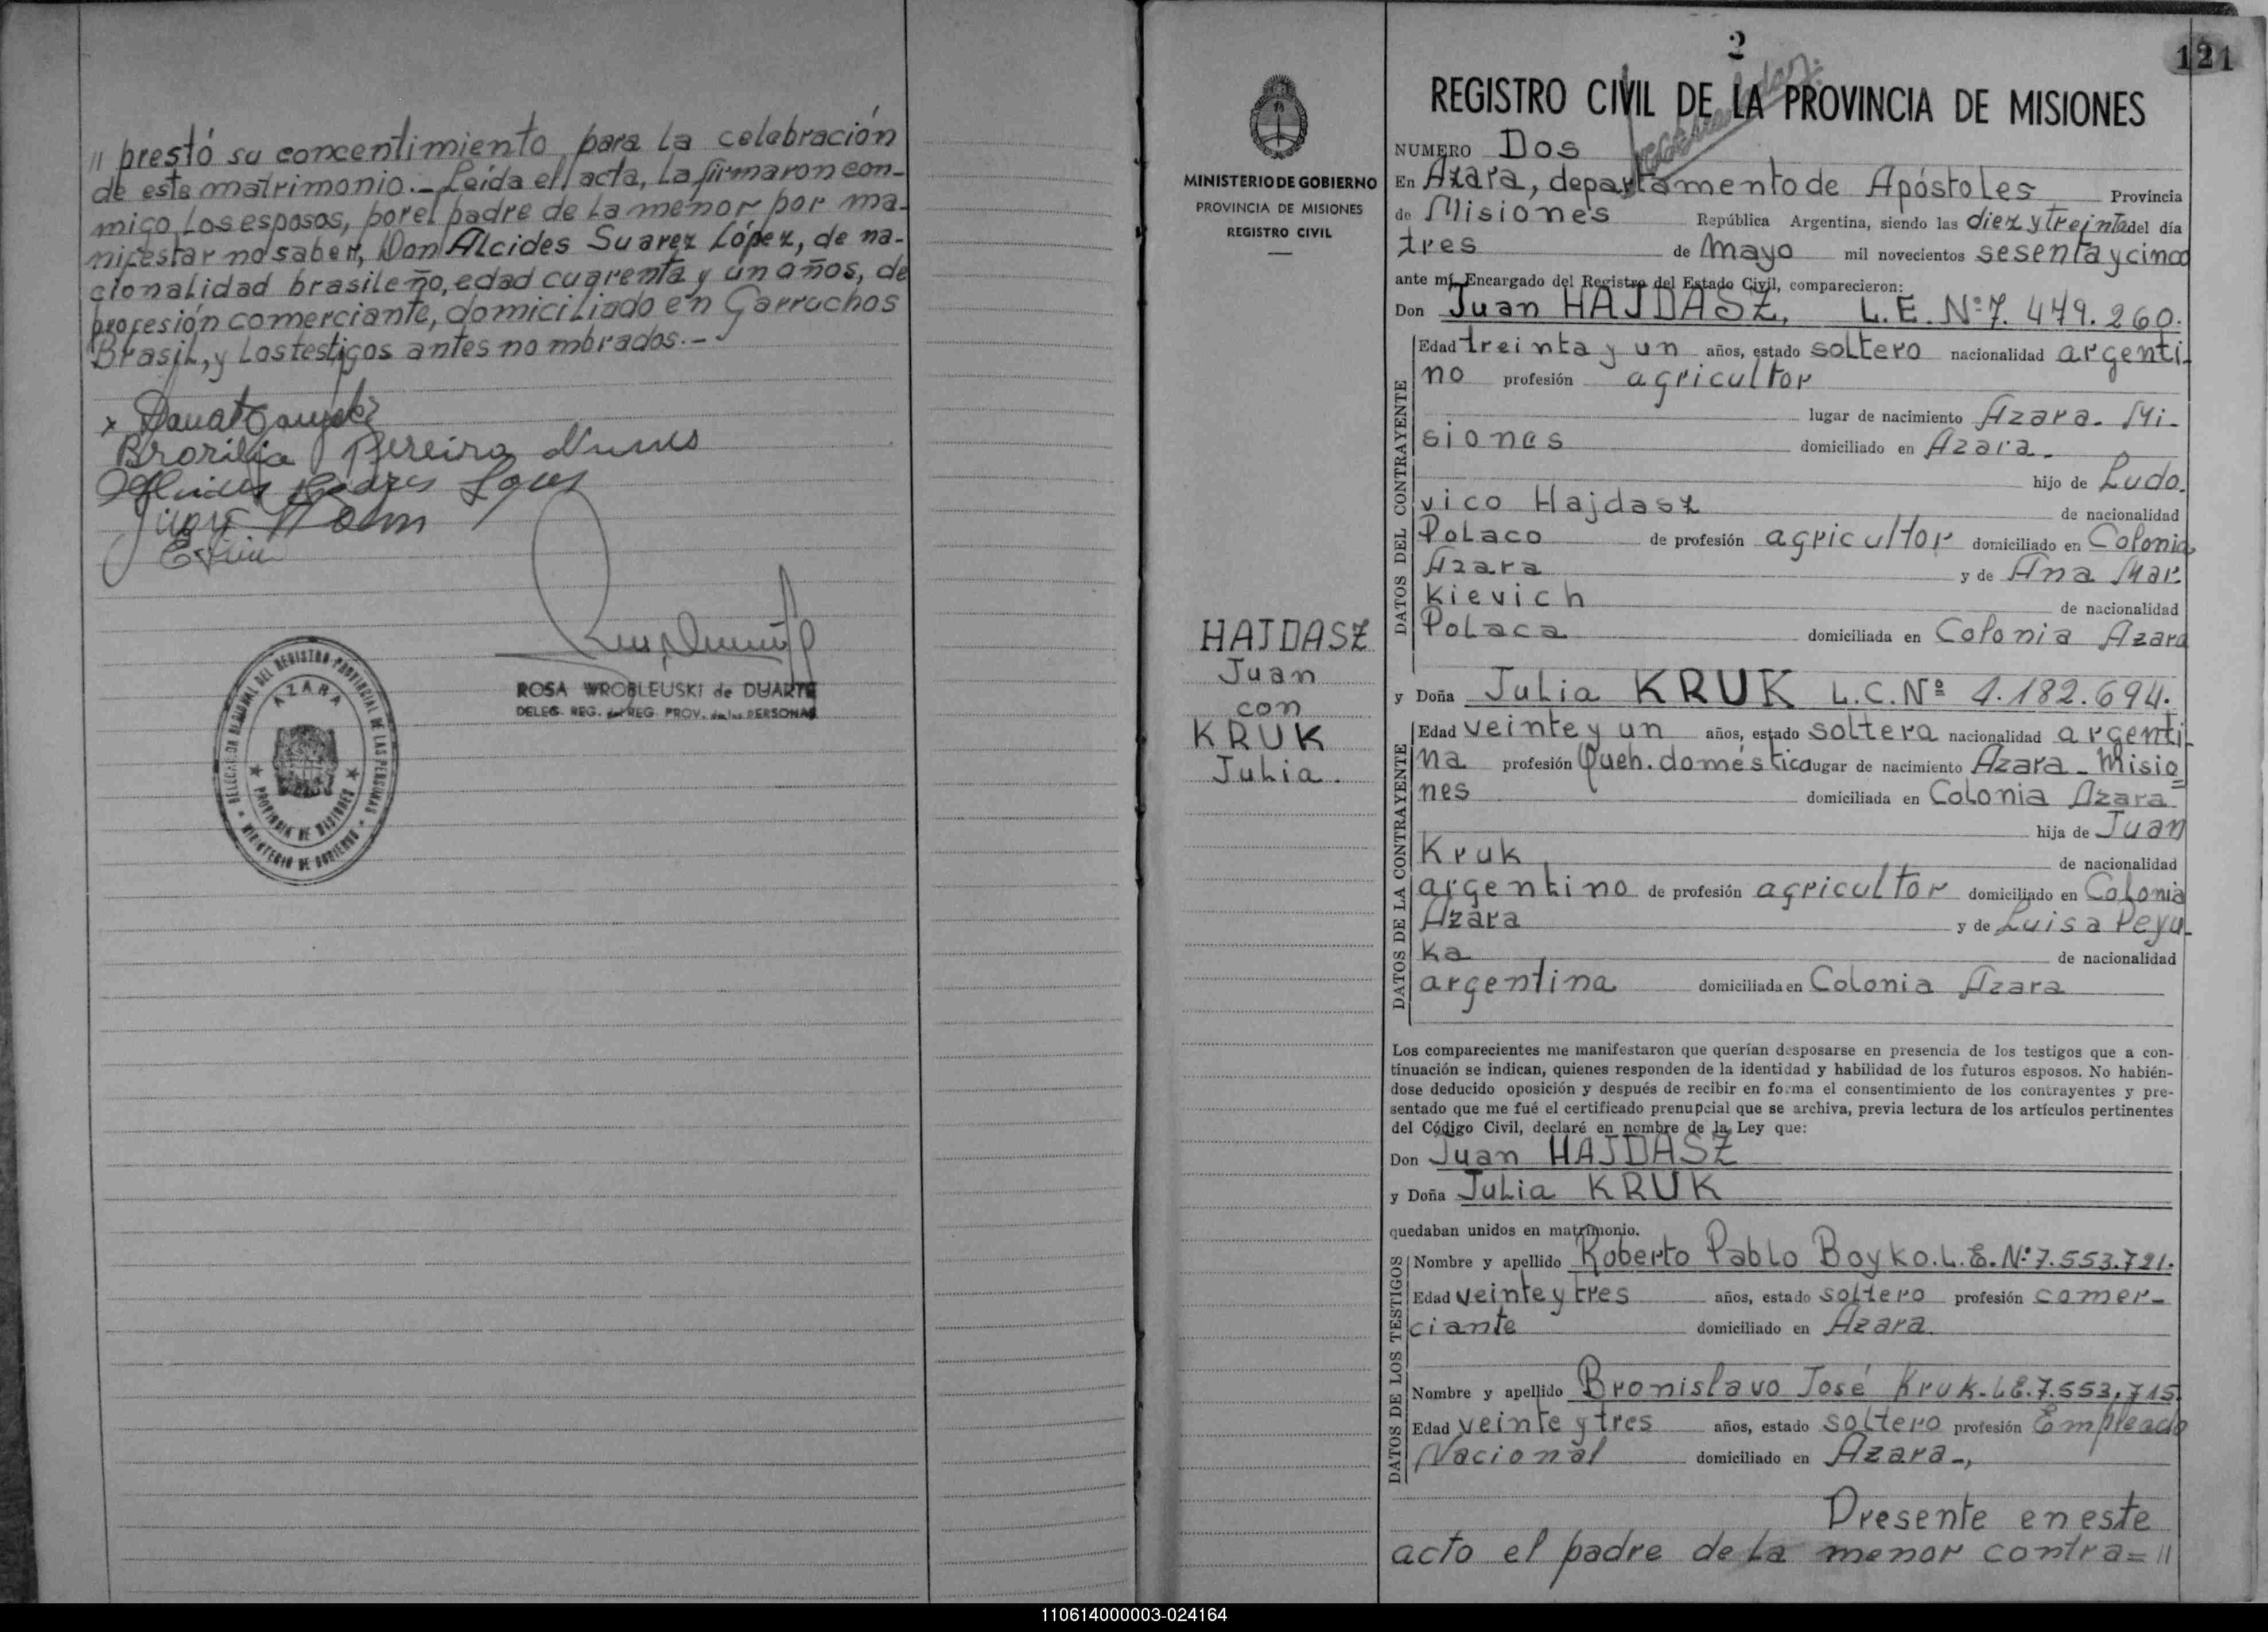 " prestó su concentimiento para la celebración
de este matrimonio.- Leída el acta, la firmaron con-
migo los esposos, por el padre de la menor por ma-
nifestar no saber, Don Alcides Suarez López, de na-
cionalidad brasileño, edad cuarenta y un años, de
profesión comerciante, domiciliado en Garruchos
Brasil, y los testigos antes nombrados.-
Pereira Nunes
ROSA WROBLEUSKI de DUARTE
DELEG. REG. del REG. PROV. de las PERSONAS
DELEGACION REGIONAL DEL REGISTRO PROVINCIAL DE LAS PERSONAS
AZARA
PROVINCIA DE MISIONES
MINISTERIO DE GOBIERNO
MINISTERIO DE GOBIERNO
PROVINCIA DE MISIONES
REGISTRO CIVIL
HAJDASZ
Juan
con
KRUK
Julia.
2
121
REGISTRO CIVIL DE LA PROVINCIA DE MISIONES
NUMERO Dos
En Azara, departamento de Apóstoles Provincia
de Misiones República Argentina, siendo las diez y treinta del día
tres de Mayo mil novecientos sesenta y cinco
ante mí, Encargado del Registro del Estado Civil, comparecieron:
Don Juan HAJDASZ, L.E. Nº 7.479.260.
DATOS DEL CONTRAYENTE
Edad treinta y un años, estado soltero nacionalidad argenti-
no profesión agricultor
lugar de nacimiento Azara. Mi-
siones domiciliado en Azara.
hijo de Ludo-
vico Hajdasz de nacionalidad
Polaco de profesión agricultor domiciliado en Colonia
Azara y de Ana Mar-
kievich de nacionalidad
Polaca domiciliada en Colonia Azara
y Doña Julia KRUK L.C. Nº 4.182.694.
DATOS DE LA CONTRAYENTE
Edad veinte y un años, estado soltera nacionalidad argenti-
na profesión Queh. doméstico lugar de nacimiento Azara - Misio=
nes domiciliada en Colonia Azara
hija de Juan
Kruk de nacionalidad
argentino de profesión agricultor domiciliado en Colonia
Azara y de Luisa Peyu-
ka de nacionalidad
argentina domiciliada en Colonia Azara
Los comparecientes me manifestaron que querían desposarse en presencia de los testigos que a con-
tinuación se indican, quienes responden de la identidad y habilidad de los futuros esposos. No habién-
dose deducido oposición y después de recibir en forma el consentimiento de los contrayentes y pre-
sentado que me fué el certificado prenupcial que se archiva, previa lectura de los artículos pertinentes
del Código Civil, declaré en nombre de la Ley que:
Don Juan HAJDASZ
y Doña Julia KRUK
quedaban unidos en matrimonio.
DATOS DE LOS TESTIGOS
Nombre y apellido Roberto Pablo Boyko. L.E. Nº 7.553.721.
Edad veinte y tres años, estado soltero profesión comer-
ciante domiciliado en Azara.
Nombre y apellido Bronislavo José Kruk. LE. 7.553.715.
Edad veinte y tres años, estado soltero profesión Empleado
Nacional domiciliado en Azara-,
Presente en este
acto el padre de la menor contra= "
110614000003-024164